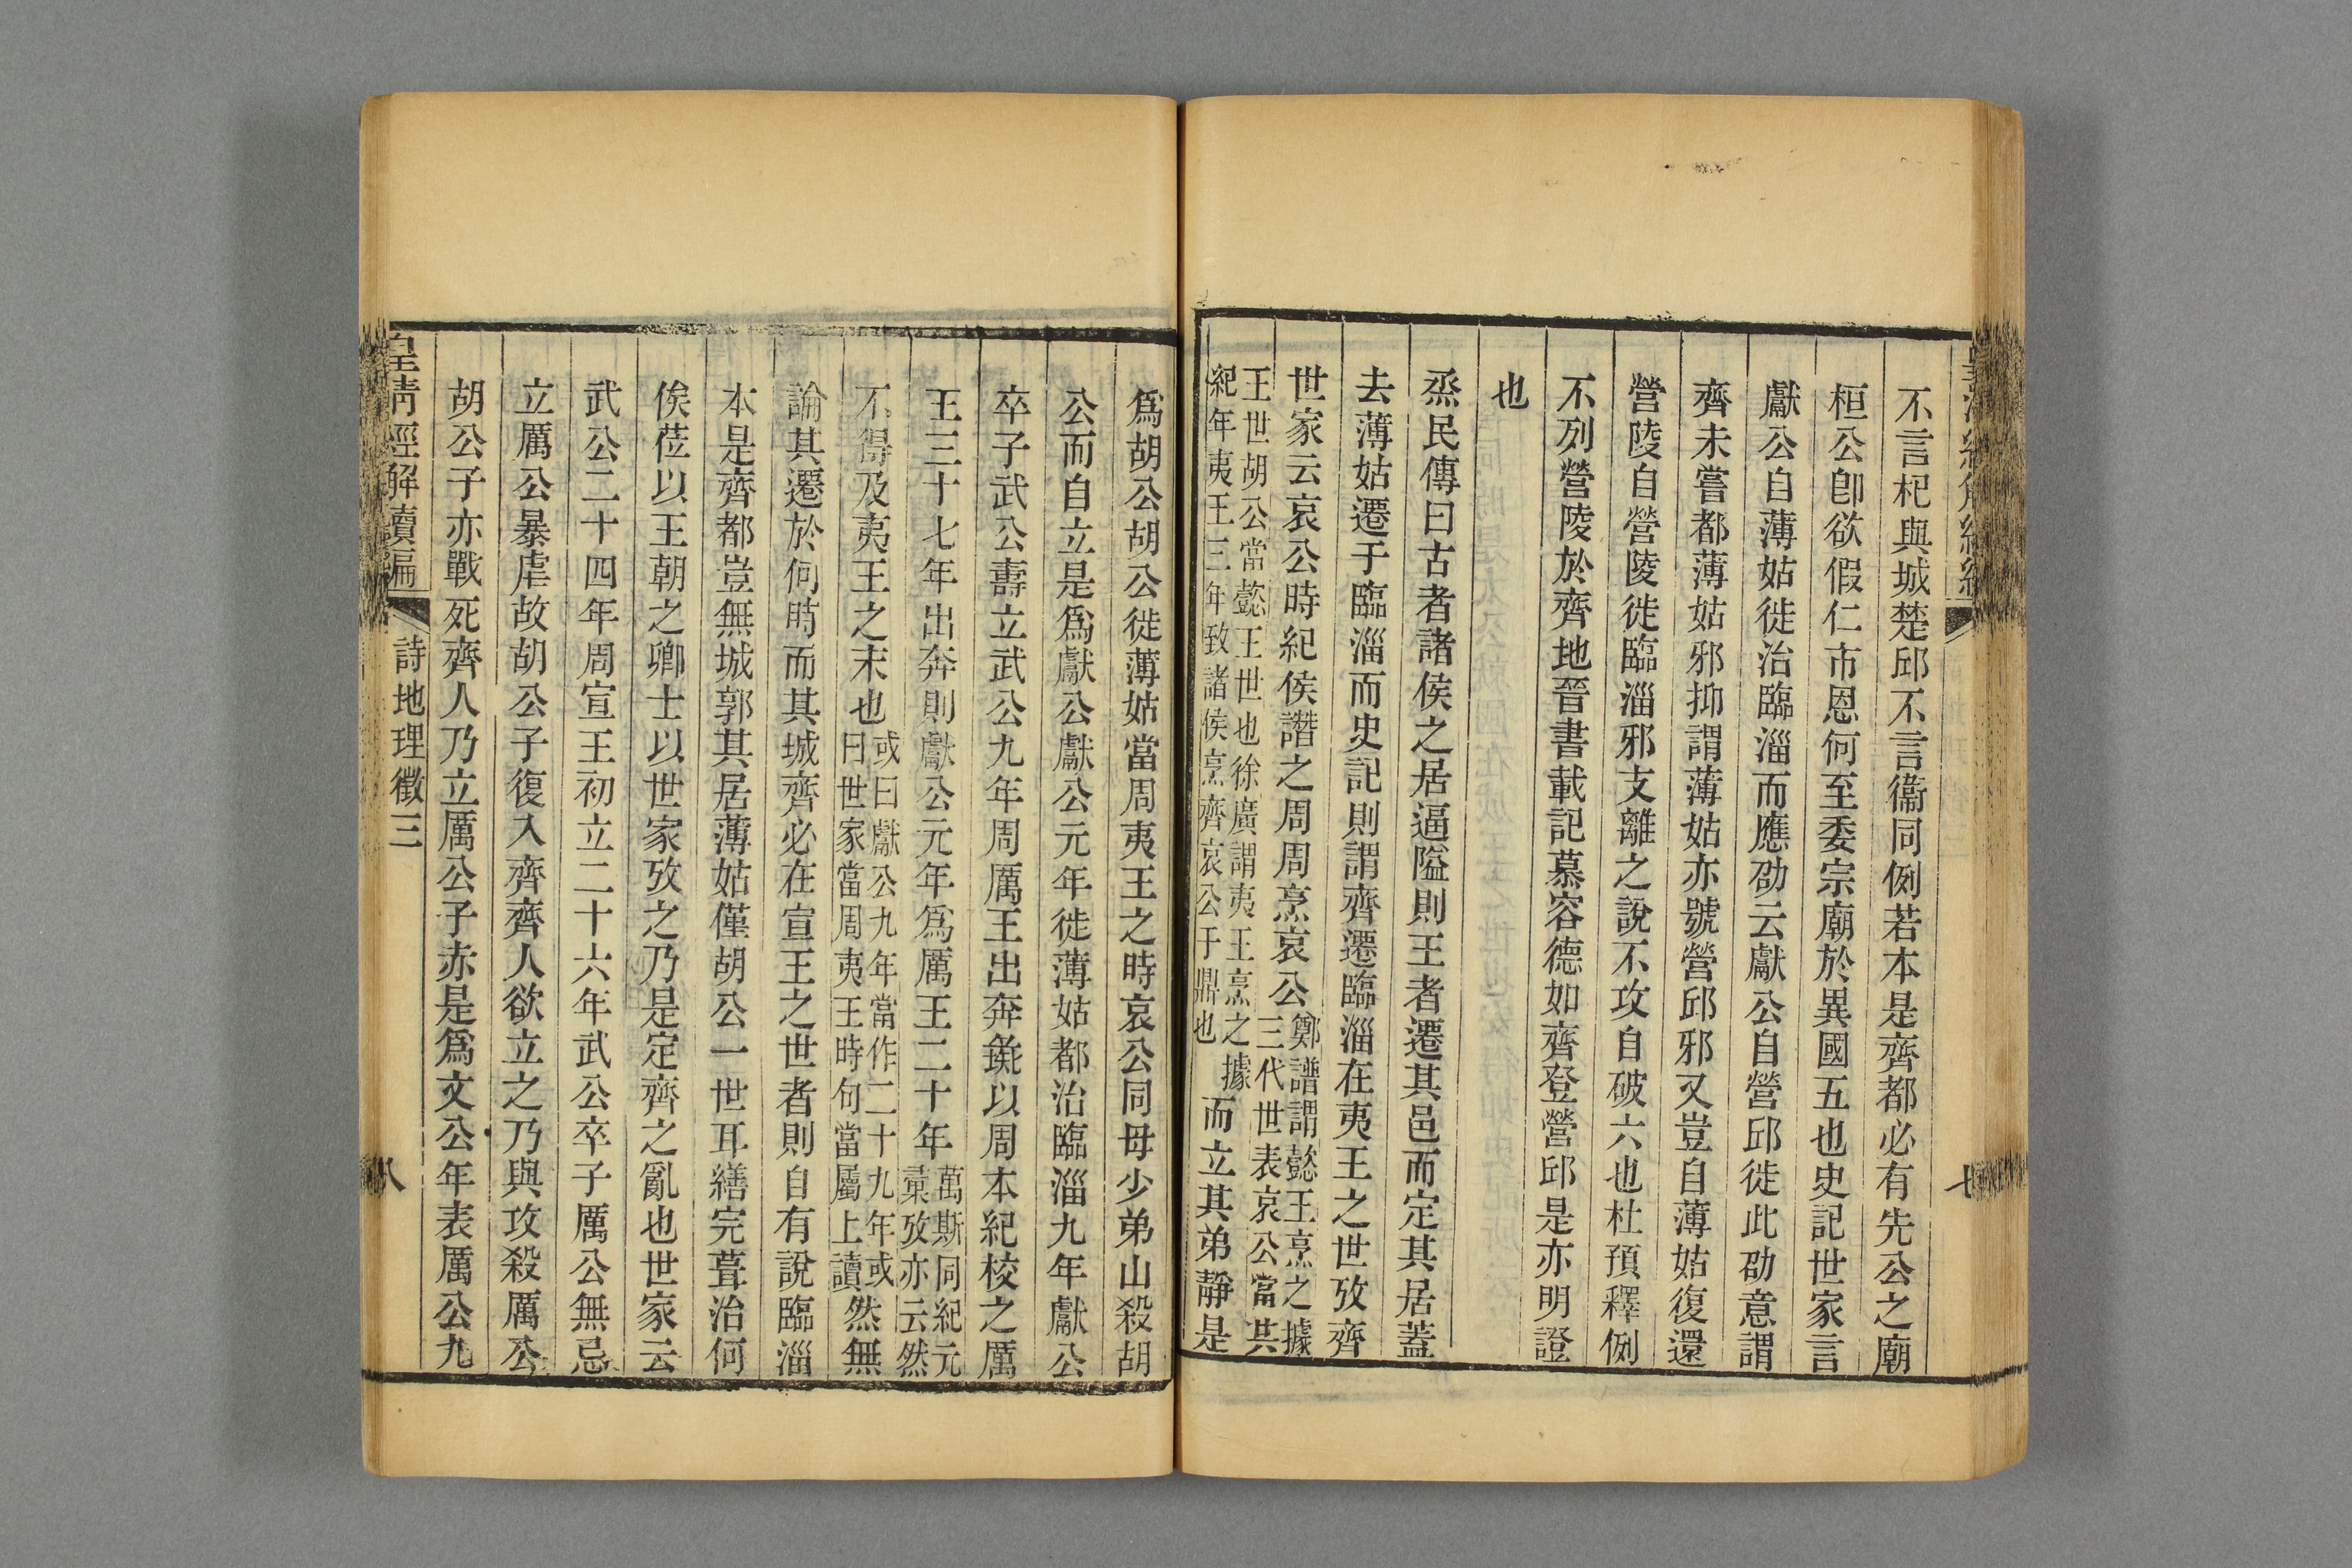 不言杞與城楚邱不言衞同例若本是齊都必有先公之廟
桓公卽欲假仁市恩何至委宗廟於異國五也史記世家言
獻公自薄姑徙治臨淄而應劭云獻公自營邱徙此劭意謂
齊未嘗都薄姑邪抑謂薄姑亦號營邱邪又豈自薄姑復還
營陵自營陵徙臨淄邪支離之說不攻自破六也杜預釋例
不列營陵於齊地晉書載記慕容德如齊登營邱是亦明證
也
烝民傳曰古者諸侯之居逼隘則王者遷其邑而定其居蓋
去薄姑遷于臨淄而史記則謂齊遷臨淄在夷王之世攷齊
世家云哀公時紀侯譖之周周烹哀公鄭譜謂懿王烹之據三代世表哀公當共
王世胡公當懿王世也徐廣謂夷王烹之據紀年夷王三年致諸侯烹齊哀公于鼎也而立其弟靜是
爲胡公胡公徙薄姑當周夷王之時哀公同母少弟山殺胡
公而自立是爲獻公獻公元年徙薄姑都治臨淄九年獻公
卒子武公壽立武公九年周厲王出奔彘以周本紀校之厲
王三十七年出奔則獻公元年爲厲王二十年萬斯同紀元彙攷亦云然
不得及夷王之末也或曰獻公九年當作二十九年或曰世家當周夷王時句當屬上讀然無
論其遷於何時而其城齊必在宣王之世者則自有說臨淄
本是齊都豈無城郭其居薄姑僅胡公一世耳繕完葺治何
俟莅以王朝之卿士以世家攷之乃是定齊之亂也世家云
武公二十四年周宣王初立二十六年武公卒子厲公無忌
立厲公暴虐故胡公子復入齊齊人欲立之乃與攻殺厲公
胡公子亦戰死齊人乃立厲公子赤是爲文公年表厲公九
皇清經解續編
詩地理徵三
八